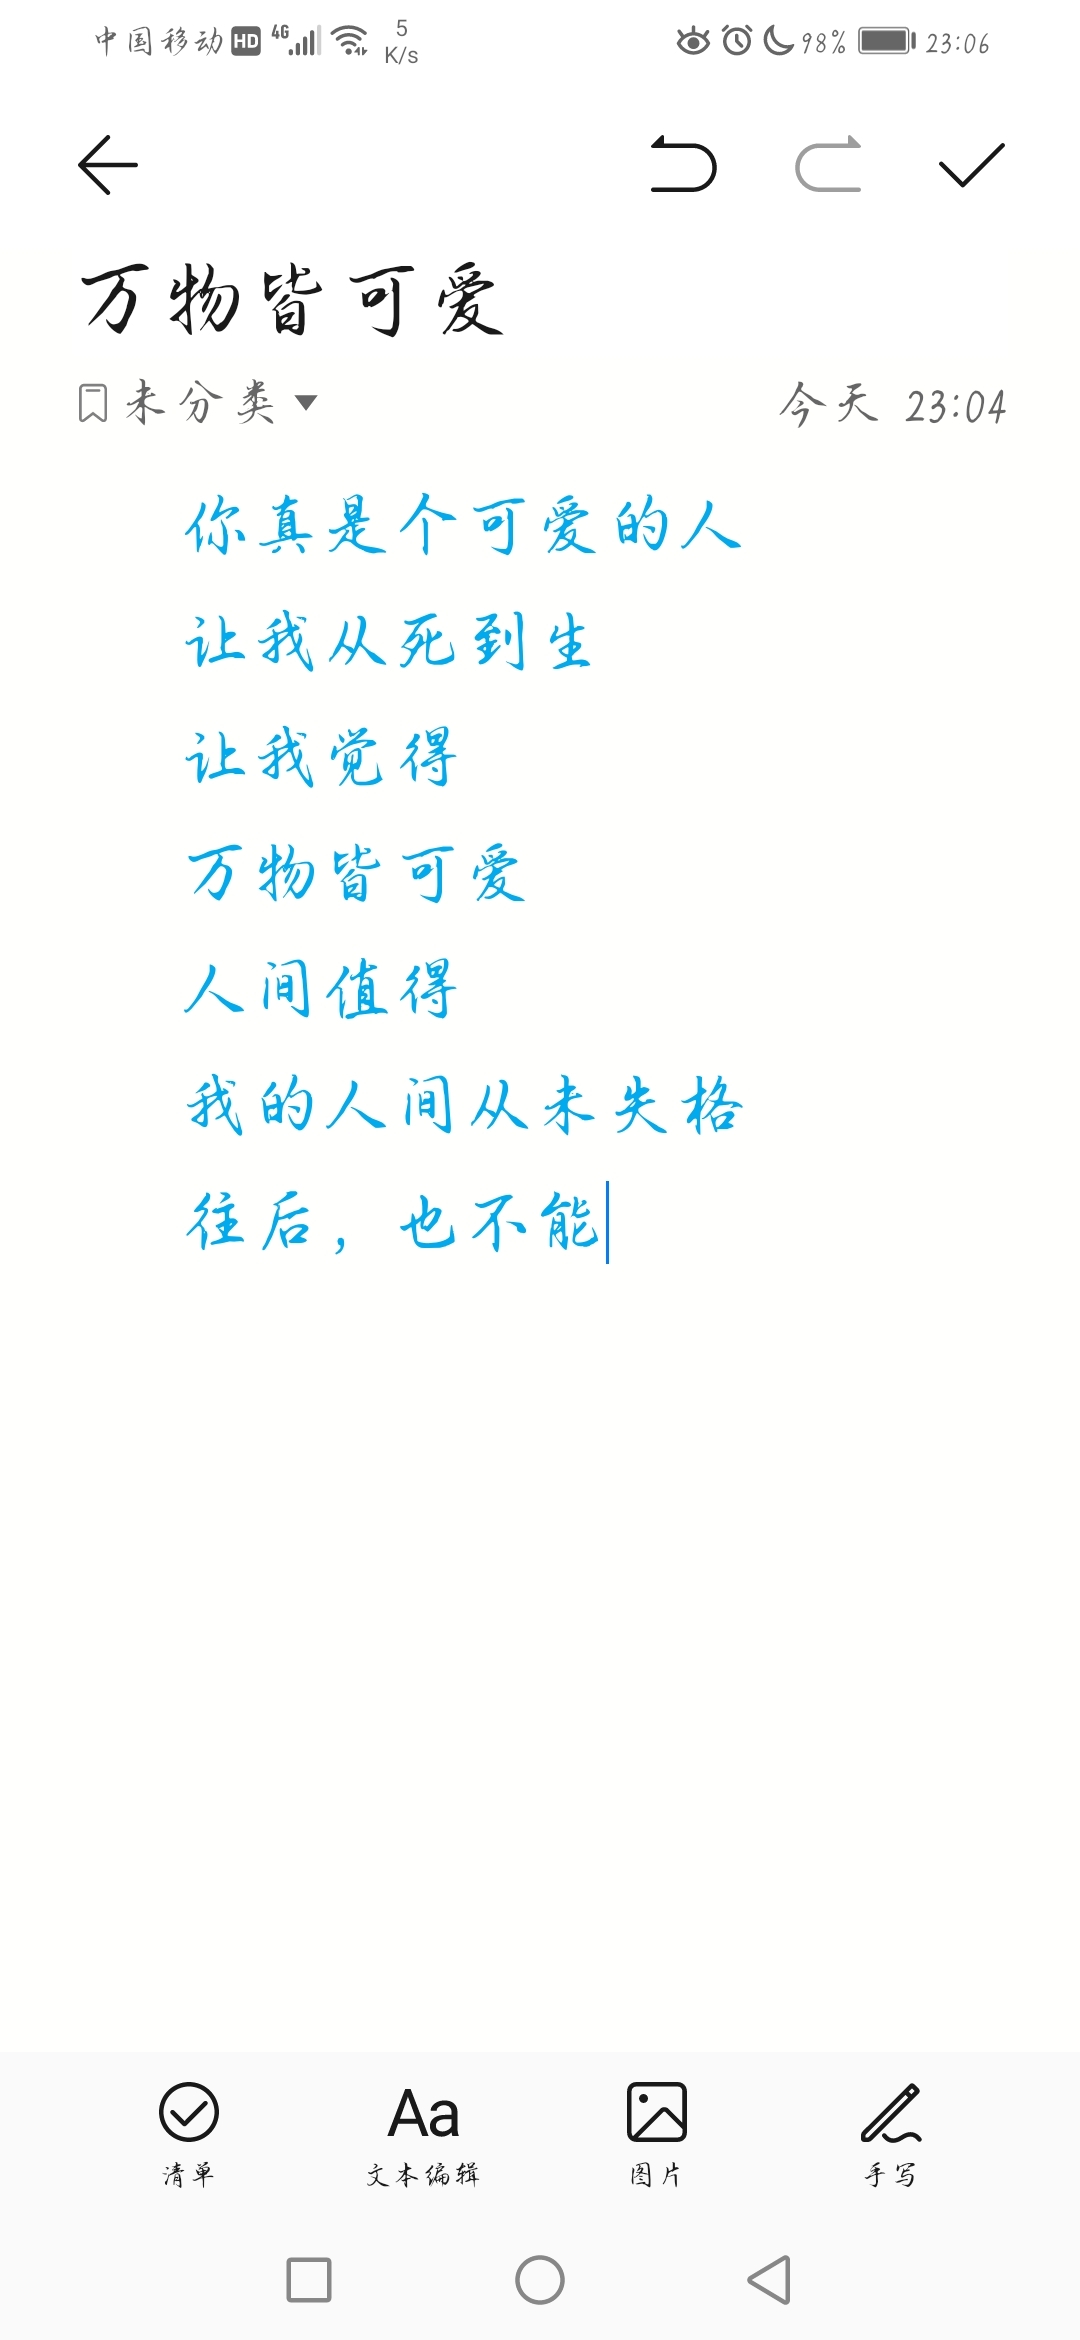 中国移动 HD 4G 5 K/s 98% 23:06
万物皆可爱
未分类 今天 23:04
你真是个可爱的人
让我从死到生
让我觉得
万物皆可爱
人间值得
我的人间从未失格
往后，也不能
清单 Aa 文本编辑 图片 手写